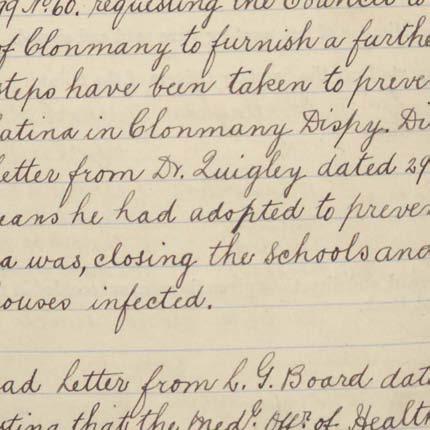 99 No. 60. requesting the Council to
of Clonmany to furnish a furthe
steps have been taken to preve
latina in Clonmany Dispy. Di
letter from Dr. Quigley dated 29
eans he had adopted to preven
a was, closing the schools and
houses infected.
ad letter from L. G. Board date
ting that the Medl. Offr. of Health